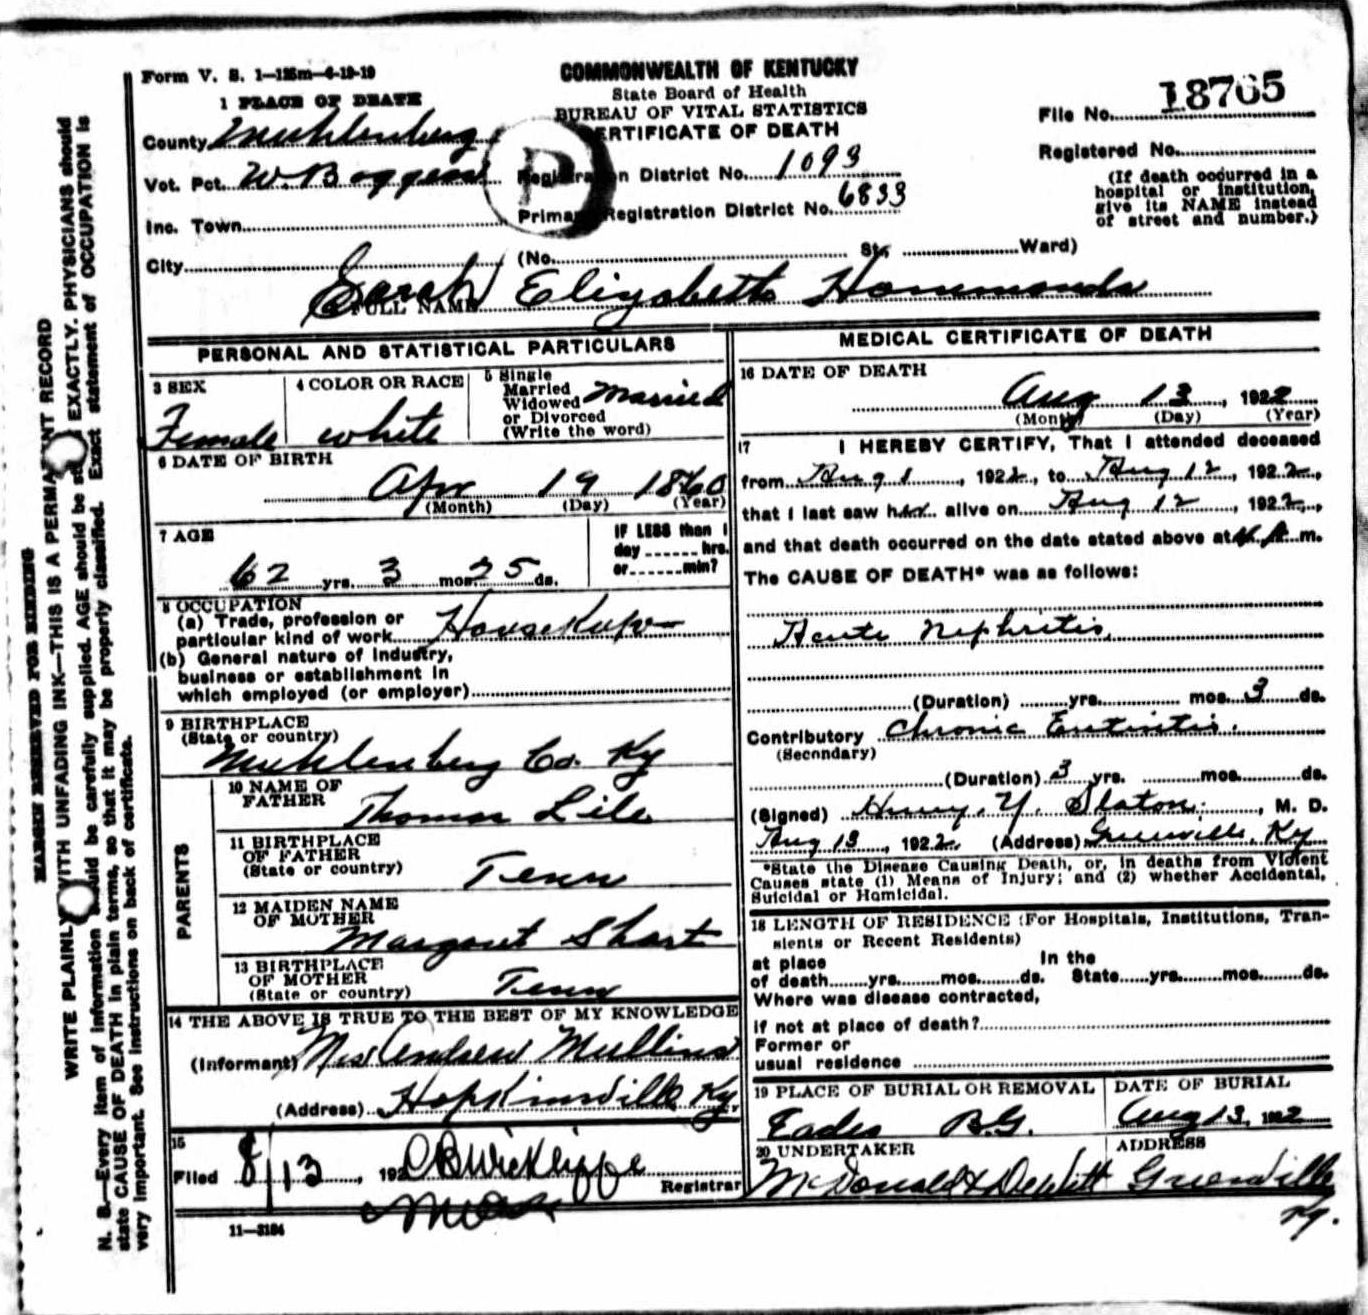 Form V. S. 1—125m—6-19-19
COMMONWEALTH OF KENTUCKY
State Board of Health
BUREAU OF VITAL STATISTICS
CERTIFICATE OF DEATH
File No. 18765
Registered No.
(If death occurred in a
hospital or institution,
give its NAME instead
of street and number.)
1 PLACE OF DEATH
County Muhlenberg
Vot. Pct. W. Boggess
Inc. Town
City
P
Registration District No. 1093
Primary Registration District No. 6833
(No. St., Ward)
FULL NAME Sarah Elizabeth Hammonds
PERSONAL AND STATISTICAL PARTICULARS
3 SEX
Female
4 COLOR OR RACE
white
5 Single
Married
Widowed
or Divorced
(Write the word)
Married
6 DATE OF BIRTH
Apr 19 1860
(Month) (Day) (Year)
7 AGE
62 yrs. 3 mos. 25 ds.
IF LESS than 1
day hrs.
or min?
8 OCCUPATION
(a) Trade, profession or
particular kind of work
(b) General nature of industry,
business or establishment in
which employed (or employer)
9 BIRTHPLACE
(State or country)
Muhlenberg Co. Ky
PARENTS
10 NAME OF
FATHER
Thomas Lile
11 BIRTHPLACE
OF FATHER
(State or country)
Tenn
12 MAIDEN NAME
OF MOTHER
Margaret Short
13 BIRTHPLACE
OF MOTHER
(State or country)
Tenn
14 THE ABOVE IS TRUE TO THE BEST OF MY KNOWLEDGE
(Informant) Mrs Andrew Mullins
(Address) Hopkinsville Ky.
15
Filed 8/13, 192 C B Wickliffe
Registrar
11—3184
MEDICAL CERTIFICATE OF DEATH
16 DATE OF DEATH
Aug 13, 1922
(Month) (Day) (Year)
17 I HEREBY CERTIFY, That I attended deceased
from Aug 1, 1922, to Aug 12, 1922,
that I last saw her alive on Aug 12, 1922,
and that death occurred on the date stated above at m.
The CAUSE OF DEATH* was as follows:
Acute Nephritis,
(Duration) yrs. mos. 3 ds.
Contributory Chronic
(Secondary)
(Duration) 3 yrs. mos. ds.
(Signed) Henry. Y. Slaton, M. D.
Aug 13, 1922. (Address) Greenville, Ky
*State the Disease Causing Death, or, in deaths from Violent
Causes state (1) Means of Injury; and (2) whether Accidental,
Suicidal or Homicidal.
18 LENGTH OF RESIDENCE (For Hospitals, Institutions, Tran-
sients or Recent Residents)
at place In the
of death yrs. mos. ds. State yrs. mos. ds.
Where was disease contracted,
if not at place of death?
Former or
usual residence
19 PLACE OF BURIAL OR REMOVAL
Eades B.G.
DATE OF BURIAL
Aug 13, 1922
20 UNDERTAKER
McDonald & Dewitt
ADDRESS
Greenville
Ky.
MARGIN RESERVED FOR BINDING
WRITE PLAINLY WITH UNFADING INK—THIS IS A PERMANENT RECORD
N. B.—Every item of information should be carefully supplied. AGE should be stated EXACTLY. PHYSICIANS should
state CAUSE OF DEATH in plain terms, so that it may be properly classified. Exact statement of OCCUPATION is
very important. See instructions on back of certificate.